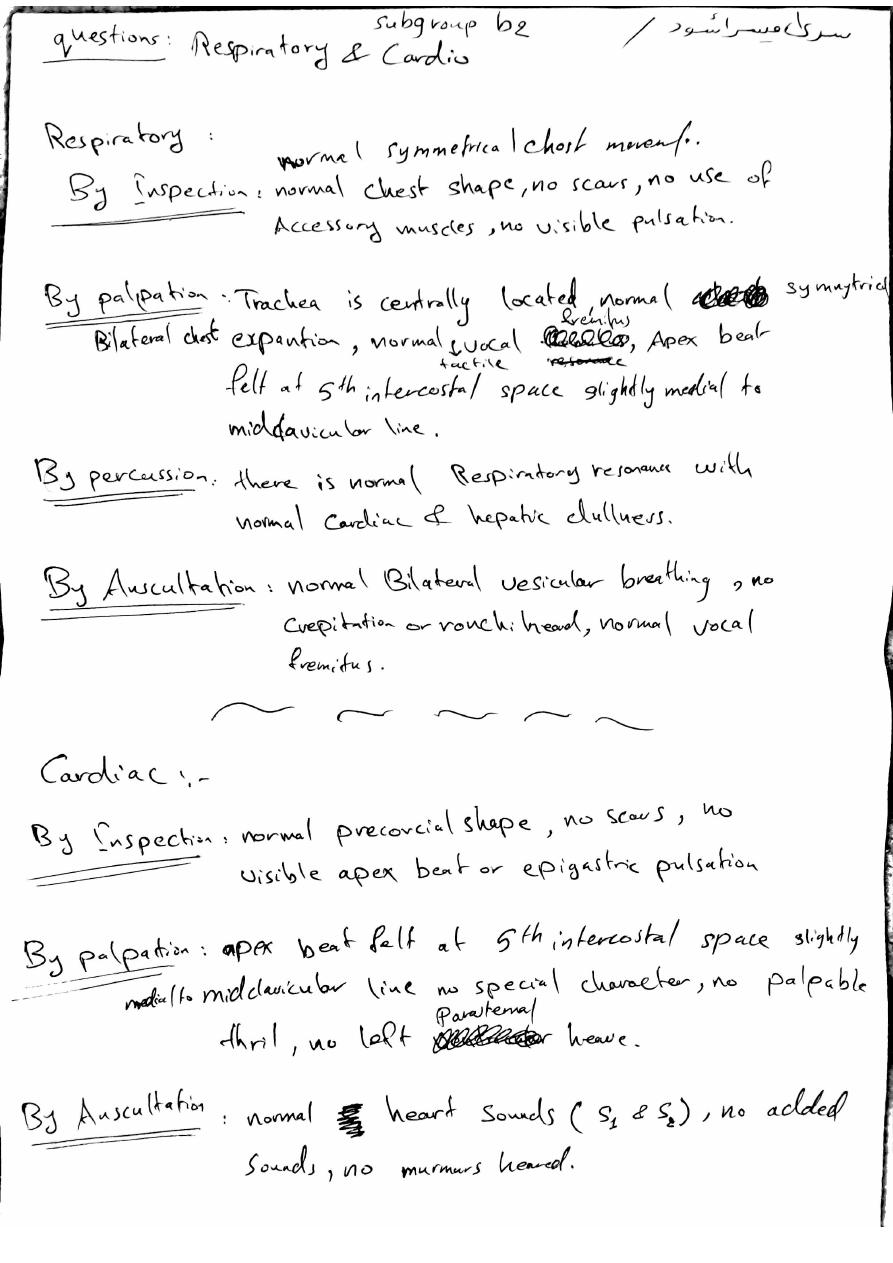 subgroup b2
questions: Respiratory & Cardio /
Respiratory :
normal symmetrical chest
By Inspection : normal chest shape, no scars, no use of
Accessory muscles, no visible pulsation.
By palpation : Trachea is centrally located, normal
fremitus
Bilateral chest expantion, normal vocal , Apex beat
tactile
felt at 5th intercostal space slightly medial to
midclavicular line.
By percussion : there is normal Respiratory resonance with
normal cardiac & hepatic dullness.
By Auscultation : normal Bilateral vesicular breathing, no
crepitation or ronchi heard, normal vocal
fremitus.
Cardiac :-
By Inspection : normal precorcial shape, no scars, no
visible apex beat or epigastric pulsation
By palpation : apex beat felt at 5th intercostal space slightly
medial to midclavicular line no special character, no palpable
parasternal
thril, no left heave.
By Auscultation : normal heart sounds (S1 & S2), no added
sounds, no murmurs heared.